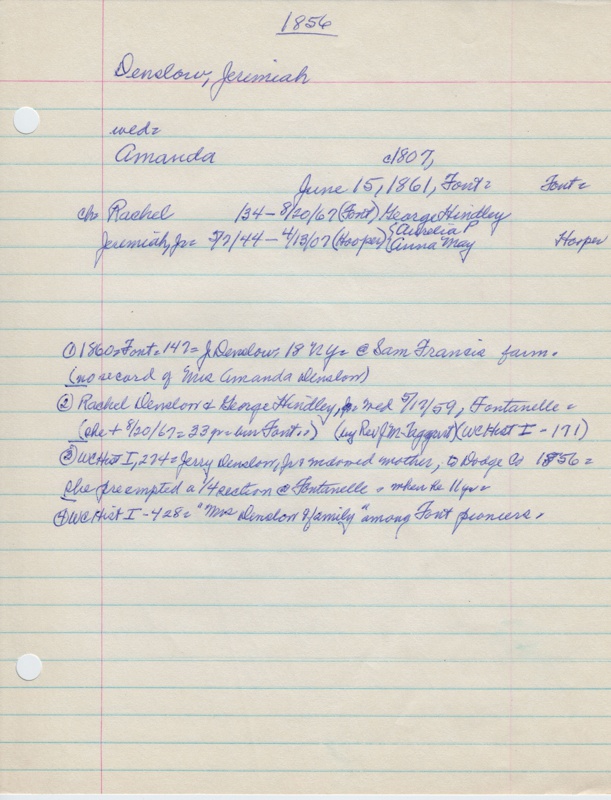 1856
Denslow, Jerimiah
wed=
Amanda c1807,
June 15, 1861, Font= Font=
ch= Rachel /34 - 8/20/67 (Font) George Hindley
Jeremiah, Jr= 5/7/44 - 4/13/07 (Hooper) {Aurelia P
Anna May Hooper
① 1860=Font=147= J. Denslow, 18 NY= @ Sam Francis farm.
(no record of Mrs Amanda Denslow)
② Rachel Denslow & George Hindley, Jr= wed 5/17/59, Fontanelle=
(she + 8/20/67=33 yr= bur Font.) (by Rev J.M. Taggart) (WCHist I - 171)
③ WCHist I, 274= Jerry Denslow, Jr & widowed mother, to Dodge Co 1856=
she preempted a 1/4 section @ Fontinelle= when he 11 yr=
④ WCHist I - 428= "Mrs Denslow & family" among Font pioneers.